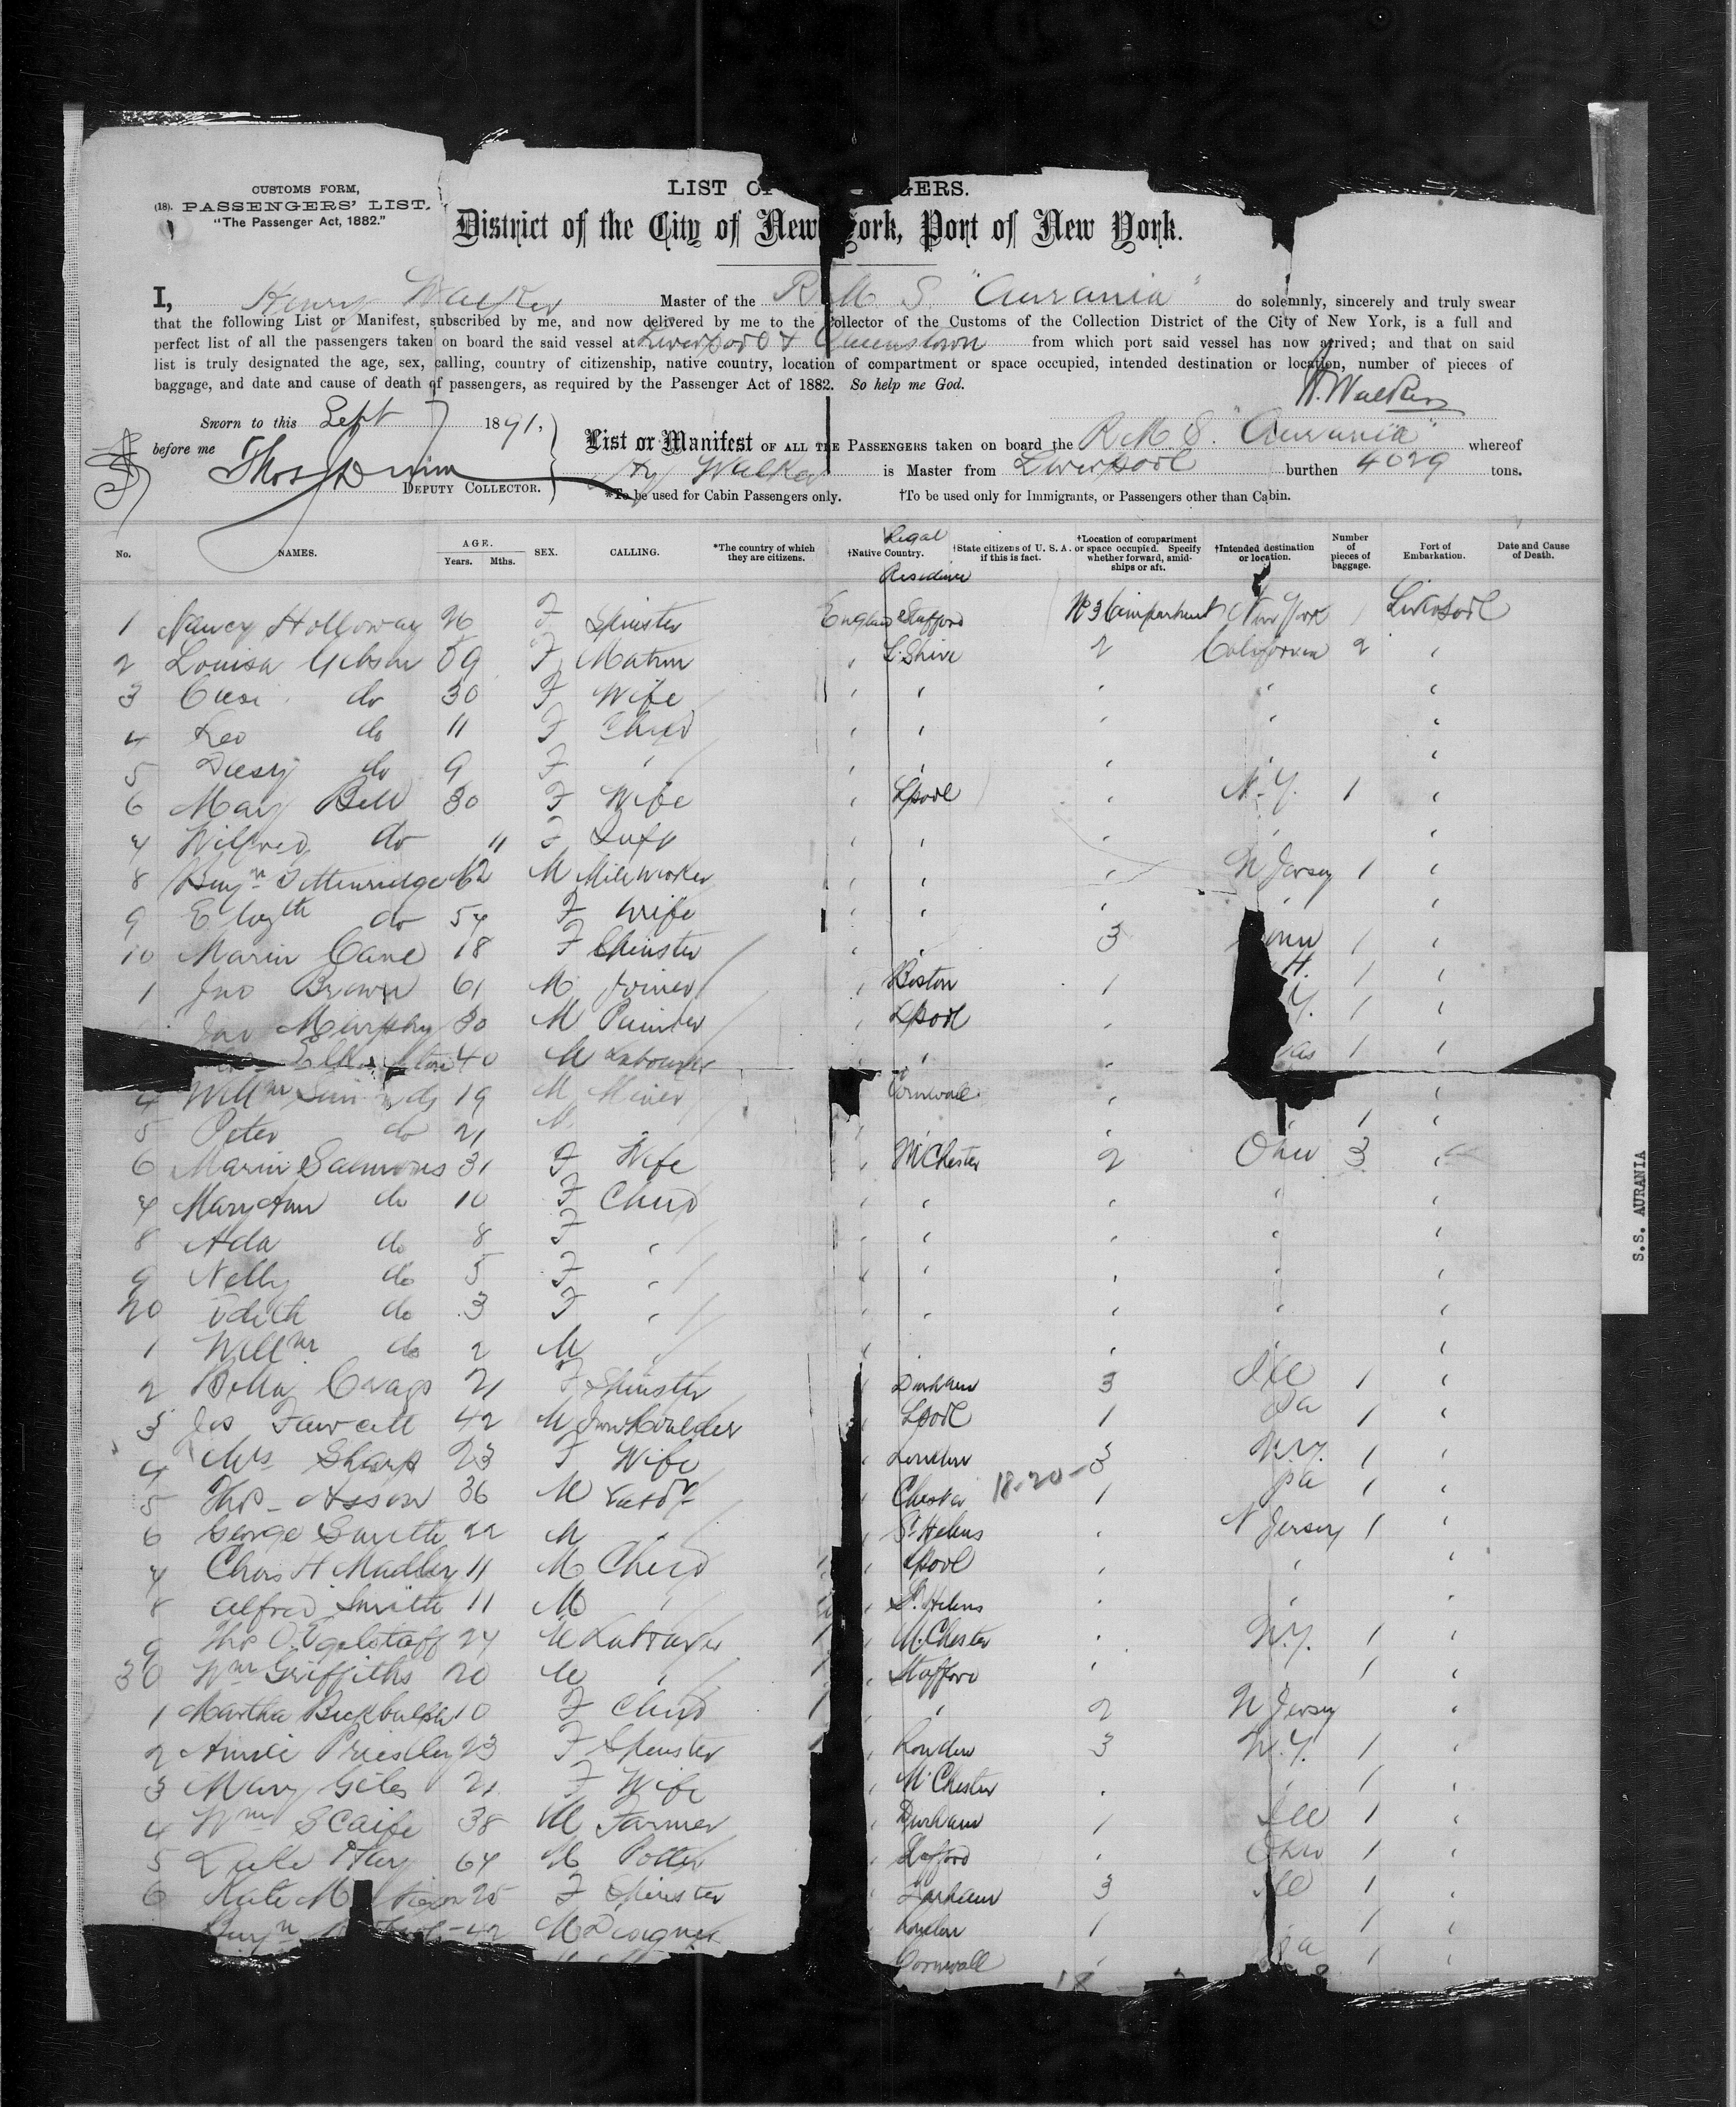 CUSTOMS FORM,
(18). PASSENGERS' LIST.
"The Passenger Act, 1882."
LIST OF GERS.
District of the City of New York, Port of New York.
I, Henry Walker Master of the R.M.S. "Aurania" do solemnly, sincerely and truly swear
that the following List or Manifest, subscribed by me, and now delivered by me to the Collector of the Customs of the Collection District of the City of New York, is a full and
perfect list of all the passengers taken on board the said vessel at Liverpool & Queenstown from which port said vessel has now arrived; and that on said
list is truly designated the age, sex, calling, country of citizenship, native country, location of compartment or space occupied, intended destination or location, number of pieces of
baggage, and date and cause of death of passengers, as required by the Passenger Act of 1882. So help me God.
H. Walker
Sworn to this Sept 7 1891,
before me
DEPUTY COLLECTOR.
List or Manifest OF ALL THE PASSENGERS taken on board the R.M.S. "Aurania" whereof
Hy Walker is Master from Liverpool burthen 4029 tons.
*To be used for Cabin Passengers only. †To be used only for Immigrants, or Passengers other than Cabin.
No. NAMES. AGE. Years. Mths. SEX. CALLING. *The country of which they are citizens. †Native Country. Legal Residence †State citizens of U. S. A. if this is fact. †Location of compartment or space occupied. Specify whether forward, amidships or aft. †Intended destination or location. Number of pieces of baggage. Port of Embarkation. Date and Cause of Death.
1 Nancy Holloway 26 F Spinster England Stafford No 3 Compartment New York 1 Liverpool
2 Louisa Gibson 59 F Matron " L'Shire 2 California 2 "
3 do 30 F Wife " " " " "
4 Leo do 11 F Child " " " " "
5 do 9 F " " " " "
6 Mary Bell 30 F Wife " Lpool " N.Y. 1 "
7 Wilfred do 11 F Inft " " " " "
8 Benjn 62 M Mill Worker " " " N Jersey 1 "
9 Elizth do 54 F Wife " " " " "
10 Maria Cane 18 F Spinster " " 3 1 "
1 Jno Brown 61 M Joiner " Boston 1 H. 1 "
Jno Murphy 30 M Painter " Lpool " Y. 1 "
40 M Labourer " " as 1 "
4 Willm 19 M Miner Cornwall " "
5 Peter do 21 M " " " " 1 "
6 Maria Salmons 31 F Wife " M'Chester 2 Ohio 3 "
7 Mary Ann do 10 F Child " " " " "
8 Ada do 8 F " " " " " "
9 Nelly do 5 F " " " " " "
20 Edith do 3 F " " " " " "
1 Willm do 2 M " " " "
2 Bella Crags 21 F Spinster Durham 3 Ill 1 "
3 Jos Fawcett 42 M Iron Moulder Lpool 1 Pa 1 "
4 Mrs Sharp 23 F Wife London 3 N.Y. 1 "
18-20-
5 Thos 36 M Labr " Chester 1 Pa 1 "
6 George Smith 22 M " " St Helens " N Jersey 1 "
7 Chas H Madley 11 M Child " Lpool " " "
8 Alfred Smith 11 M " " St Helens " " "
9 Thos 24 M Labourer " M'Chester " N.Y. 1 "
30 Wm Griffiths 20 M " " Stafford " 1 "
1 Martha 10 F Child " " 2 N Jersey "
2 Annie Priestley 23 F Spinster " London 3 N.Y. 1 "
3 Mary Giles 21 F Wife " M'Chester " " 1 "
4 Wm Scaife 38 M Farmer " Durham 1 Ill 1 "
5 Luke 64 M Potter " Stafford " Ohio 1 "
6 Kate M 25 F Spinster " Durham 3 Ill 1 "
Benjn 42 M Designer London 1 1 "
Cornwall " Pa 1 "
18
S.S. AURANIA